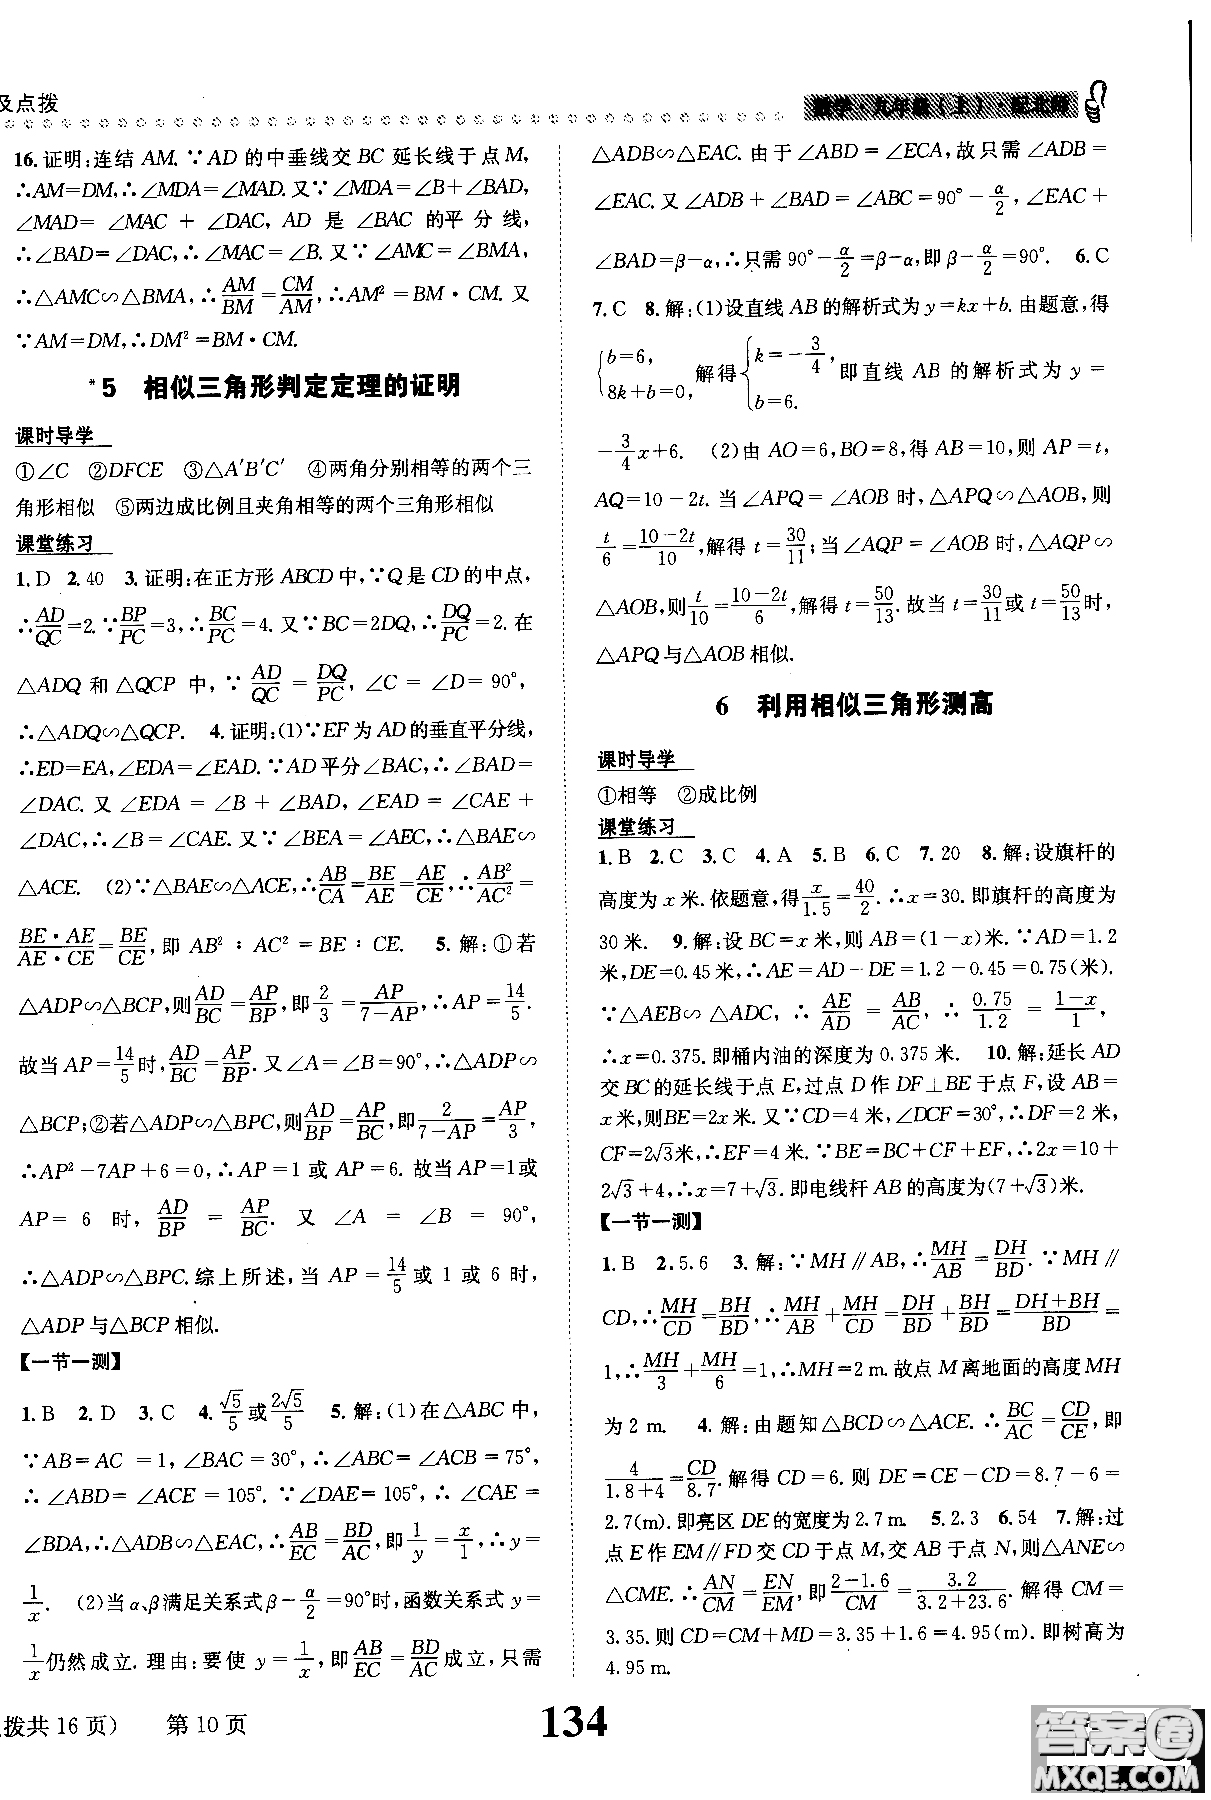 及点拨
数学·九年级(上)·配北师
16.证明:连结 AM. ∵AD 的中垂线交 BC 延长线于点 M,
∴AM=DM,∴∠MDA=∠MAD. 又∵∠MDA=∠B+∠BAD,
∠MAD=∠MAC+∠DAC, AD 是 ∠BAC 的平分线,
∴∠BAD=∠DAC,∴∠MAC=∠B. 又∵∠AMC=∠BMA,
∴△AMC∽△BMA,∴AM/BM=CM/AM,∴AM²=BM·CM. 又
∵AM=DM,∴DM²=BM·CM.
*5 相似三角形判定定理的证明
课时导学
①∠C ②DFCE ③△A′B′C′ ④两角分别相等的两个三
角形相似 ⑤两边成比例且夹角相等的两个三角形相似
课堂练习
1.D 2.40 3.证明:在正方形 ABCD 中,∵Q 是 CD 的中点,
∴AD/QC=2. ∵BP/PC=3,∴BC/PC=4. 又∵BC=2DQ,∴DQ/PC=2. 在
△ADQ 和 △QCP 中,∵AD/QC=DQ/PC,∠C=∠D=90°,
∴△ADQ∽△QCP. 4.证明:(1)∵EF 为 AD 的垂直平分线,
∴ED=EA,∠EDA=∠EAD. ∵AD 平分∠BAC,∴∠BAD=
∠DAC. 又 ∠EDA=∠B+∠BAD,∠EAD=∠CAE+
∠DAC,∴∠B=∠CAE. 又∵∠BEA=∠AEC,∴△BAE∽
△ACE. (2)∵△BAE∽△ACE,∴AB/CA=BE/AE=AE/CE,∴AB²/AC²=
BE·AE/AE·CE=BE/CE,即 AB²:AC²=BE:CE. 5.解:①若
△ADP∽△BCP,则AD/BC=AP/BP,即2/3=AP/(7-AP),∴AP=14/5.
故当 AP=14/5时,AD/BC=AP/BP. 又∠A=∠B=90°,∴△ADP∽
△BCP;②若△ADP∽△BPC,则AD/BP=AP/BC,即2/(7-AP)=AP/3,
∴AP²-7AP+6=0,∴AP=1 或 AP=6. 故当 AP=1或
AP=6 时,AD/BP=AP/BC. 又 ∠A=∠B=90°,
∴△ADP∽△BPC. 综上所述,当 AP=14/5或 1 或 6 时,
△ADP 与△BCP 相似.
【一节一测】
1.B 2.D 3.C 4.√5/5或2√5/5 5.解:(1)在△ABC 中,
∵AB=AC=1,∠BAC=30°,∴∠ABC=∠ACB=75°,
∴∠ABD=∠ACE=105°. ∵∠DAE=105°,∴∠CAE=
∠BDA,∴△ADB∽△EAC,∴AB/EC=BD/AC,即1/y=x/1,∴y=
1/x. (2)当α、β满足关系式β-α/2=90°时,函数关系式 y=
1/x仍然成立. 理由:要使 y=1/x,即AB/EC=BD/AC成立,只需
△ADB∽△EAC. 由于∠ABD=∠ECA,故只需∠ADB=
∠EAC. 又∠ADB+∠BAD=∠ABC=90°-α/2,∠EAC+
∠BAD=β-α,∴只需 90°-α/2=β-α,即β-α/2=90°. 6.C
7.C 8.解:(1)设直线 AB 的解析式为 y=kx+b. 由题意,得
{b=6, 8k+b=0, 解得{k=-3/4, b=6. 即直线 AB 的解析式为 y=
-3/4x+6. (2)由 AO=6,BO=8,得 AB=10,则 AP=t,
AQ=10-2t. 当∠APQ=∠AOB 时,△APQ∽△AOB,则
t/6=(10-2t)/10,解得 t=30/11;当∠AQP=∠AOB 时,△AQP∽
△AOB,则t/10=(10-2t)/6,解得 t=50/13. 故当 t=30/11或 t=50/13时,
△APQ 与△AOB 相似.
6 利用相似三角形测高
课时导学
①相等 ②成比例
课堂练习
1.B 2.C 3.C 4.A 5.B 6.C 7.20 8.解:设旗杆的
高度为 x 米. 依题意,得x/1.5=40/2. ∴x=30. 即旗杆的高度为
30 米. 9.解:设 BC=x 米,则 AB=(1-x)米. ∵AD=1.2
米,DE=0.45 米,∴AE=AD-DE=1.2-0.45=0.75(米).
∵△AEB∽△ADC,∴AE/AD=AB/AC,∴0.75/1.2=(1-x)/1,
∴x=0.375. 即桶内油的深度为 0.375 米. 10.解:延长 AD
交 BC 的延长线于点 E,过点 D 作 DF⊥BE 于点 F,设 AB=
x 米,则BE=2x 米. 又∵CD=4 米,∠DCF=30°,∴DF=2 米,
CF=2√3米,∴EF=4 米. ∵BE=BC+CF+EF,∴2x=10+
2√3+4,∴x=7+√3. 即电线杆 AB 的高度为(7+√3)米.
【一节一测】
1.B 2.5.6 3.解:∵MH∥AB,∴MH/AB=DH/BD. ∵MH∥
CD,∴MH/CD=BH/BD,∴MH/AB+MH/CD=DH/BD+BH/BD=(DH+BH)/BD=
1,∴MH/3+MH/6=1,∴MH=2 m. 故点 M 离地面的高度 MH
为 2 m. 4.解:由题知△BCD∽△ACE. ∴BC/AC=CD/CE,即
4/(1.8+4)=CD/8.7. 解得 CD=6. 则 DE=CE-CD=8.7-6=
2.7(m). 即亮区 DE 的宽度为 2.7 m. 5.2.3 6.54 7.解:过
点 E 作 EM∥FD 交 CD 于点 M,交 AB 于点 N,则△ANE∽
△CME. ∴AN/CM=EN/EM,即(2-1.6)/CM=3.2/(3.2+23.6). 解得 CM=
3.35. 则 CD=CM+MD=3.35+1.6=4.95(m). 即树高为
4.95 m.
拨共 16 页) 第 10 页
134
答案圈
MXQE.COM